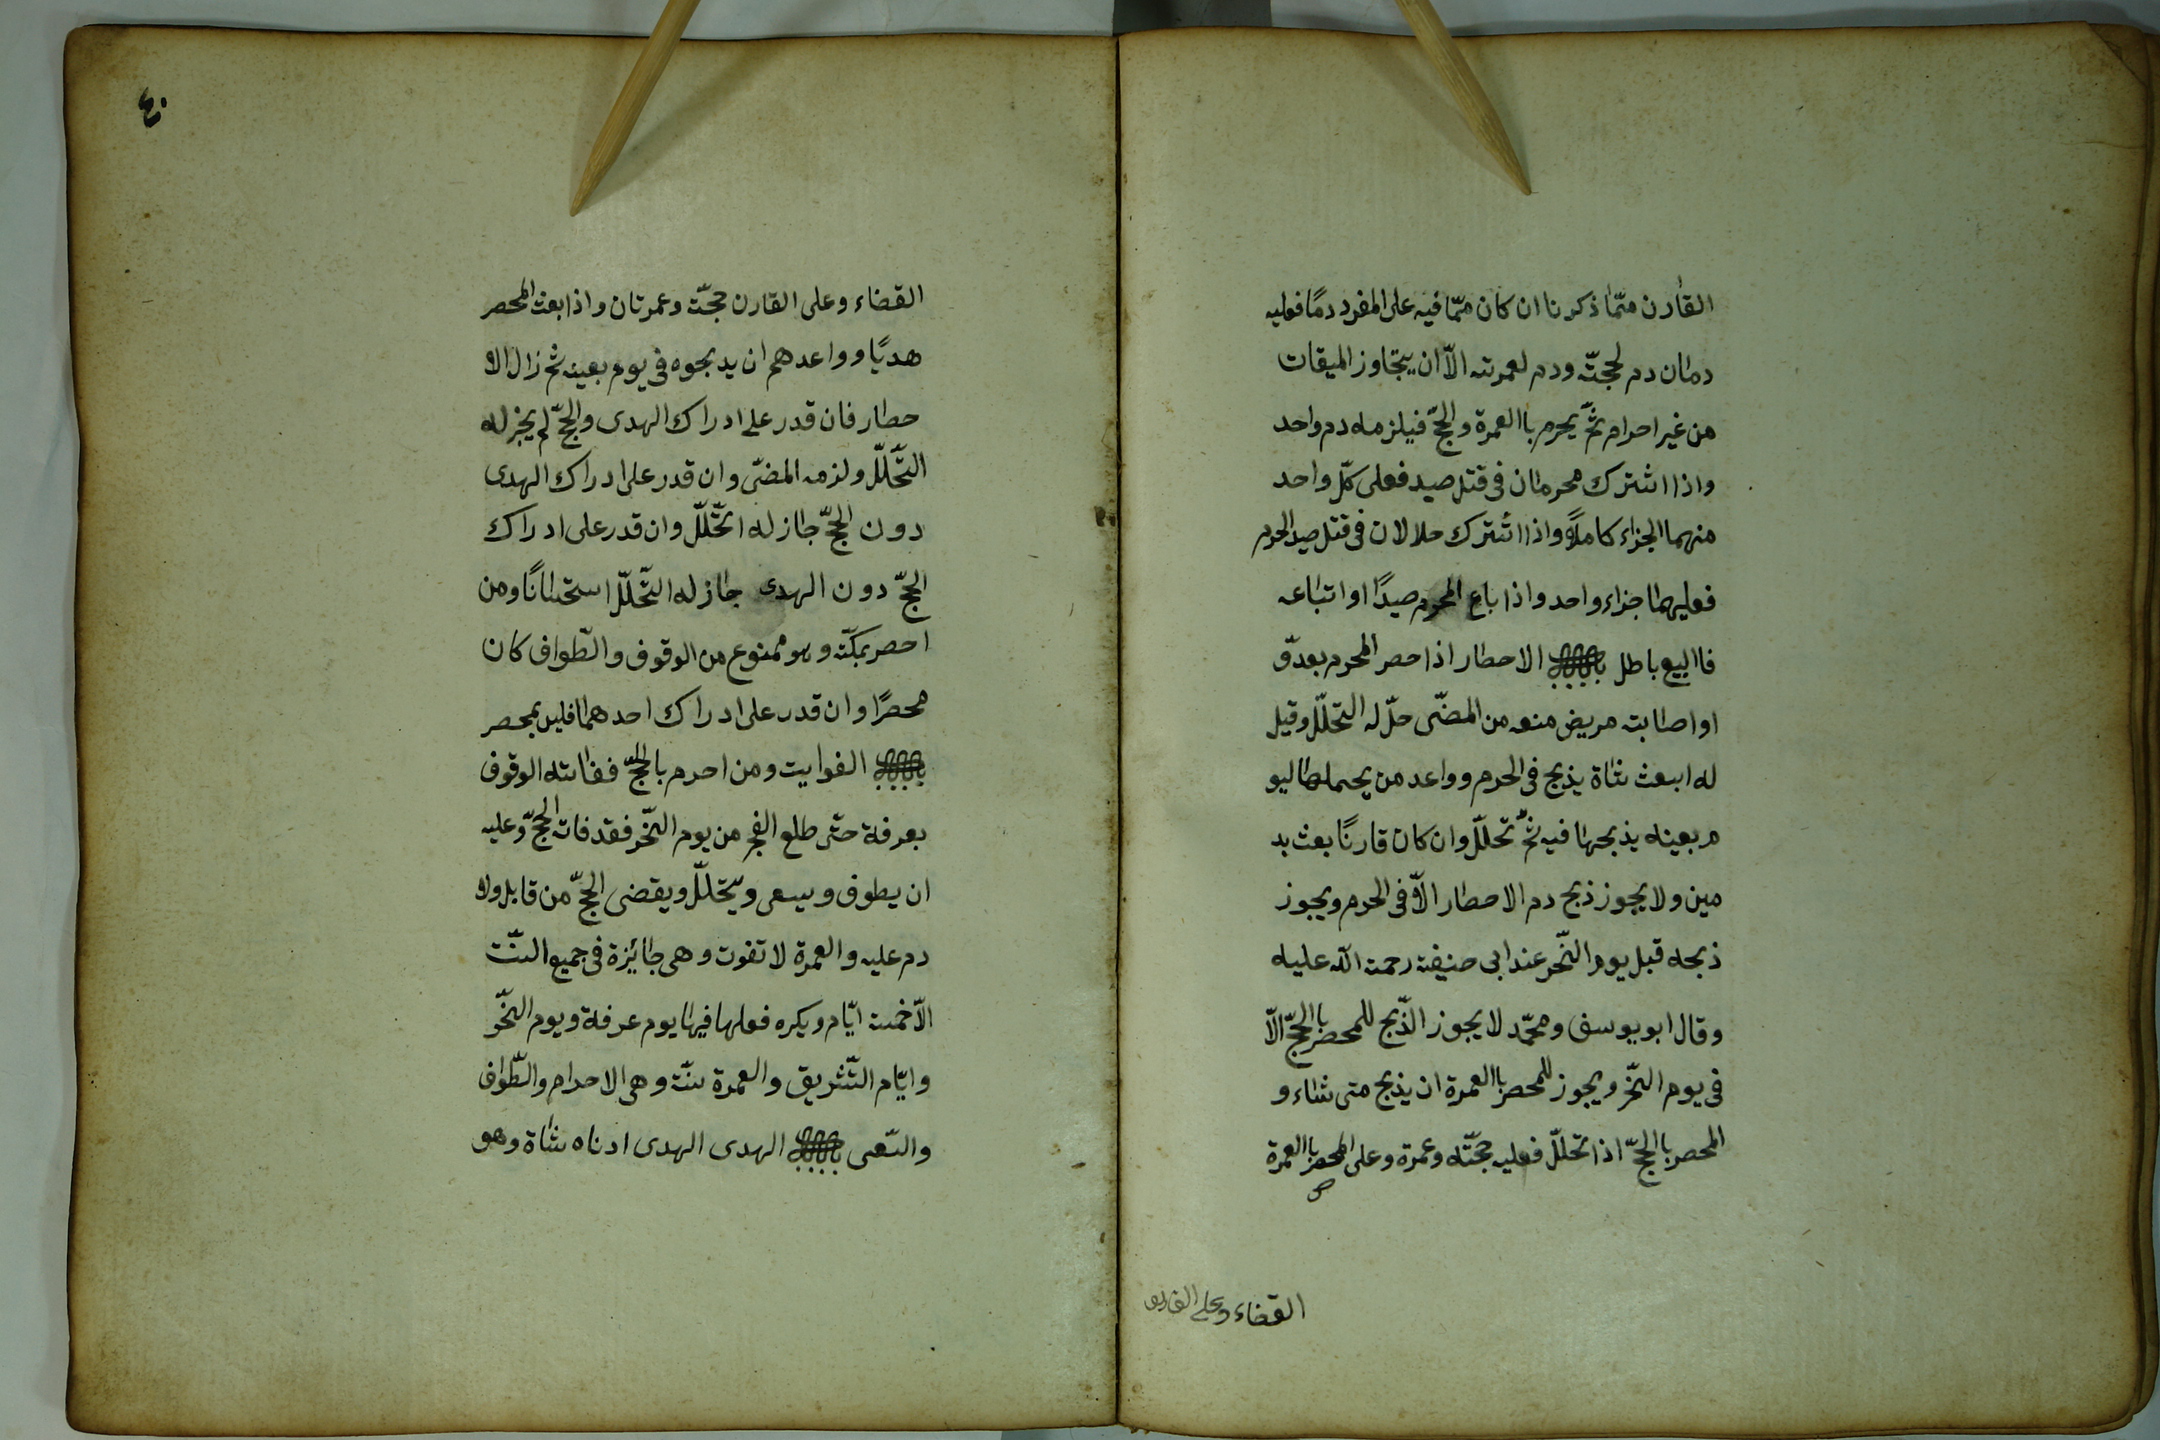 القارن ممّا ذكرنا ان كان ممّا فيه على المفرد دمًا فعليه
دمان دم لحجتّه ودم لعمرته الّا ان يتجاوز الميقات
من غير احرام ثمّ يحرم باالعمرة والحجّ فيلزمه دم واحد
واذا اشترك محرمان فى قتل صيد فعلى كلّ واحد
منهما الجزاء كاملاً واذا اشترك حلالان فى قتل صيد الحرم
فعليهما جزاء واحد واذا باع المحرم صيدًا او اتباعه
فاالبيع باطل باب الاحصار اذا حصر المحرم بعدوّ
او اصابته مريض منعه من المضّى حلّ له التحللّ وقيل
له ابعث شاة يذبح فى الحرم وواعد من يحملها ليو
م بعينه يذبحها فيه ثمّ تحللّ وان كان قارنًا بعث بد
مين ولا يجوز ذبح دم الاحصار الاّ فى الحرم ويجوز
ذبحه قبل يوم النّحر عند ابى حنيفة رحمة الله عليه
وقال ابو يوسف ومحمّد لا يجوز الذّبح للمحصر بالحجّ الّا
فى يوم النّحر ويجوز للمحصر باالعمرة ان يذبح متى شاء و
المحصر بالحجّ اذا تحللّ فعليه حجّته وعمرة وعلى المحصر باالعمرة
القضاء وعلى القارن
٤٠
القضاء وعلى القارن حجّة وعمرتان واذا بعث المحصر
هديًا وواعدهم ان يذبحوه فى يوم بعينه ثم زال الا
حصار فان قدر على ادراك الهدى والحجّ لم يجز له
التّحللّ ولزمه المضّى وان قدر على ادراك الهدى
دون الحجّ جاز له اتّحللّ وان قدر على ادراك
الحجّ دون الهدى جاز له التّحللّ استحسانًا ومن
احصر بمكّة وهو ممنوع من الوقوف والطّواف كان
محصرًا وان قدر على ادراك احدهما فليس بمحصر
باب الفوايت ومن احرم بالحجّ ففاته الوقوف
بعرفة حتّى طلع الفجر من يوم النّحر فقد فات الحجّ وعليه
ان يطوف ويسعى ويتحللّ ويقضى الحجّ من قابل ولا
دم عليه والعمرة لا تفوت وهى جائزة فى جميع السّنة
الّا خمسة ايّام ويكره فعلها فيها يوم عرفة ويوم النّحر
وايّام التّشريق والعمرة سنّة وهى الاحرام والطّواف
والسّعى باب الهدى الهدى ادناه شاة وهو